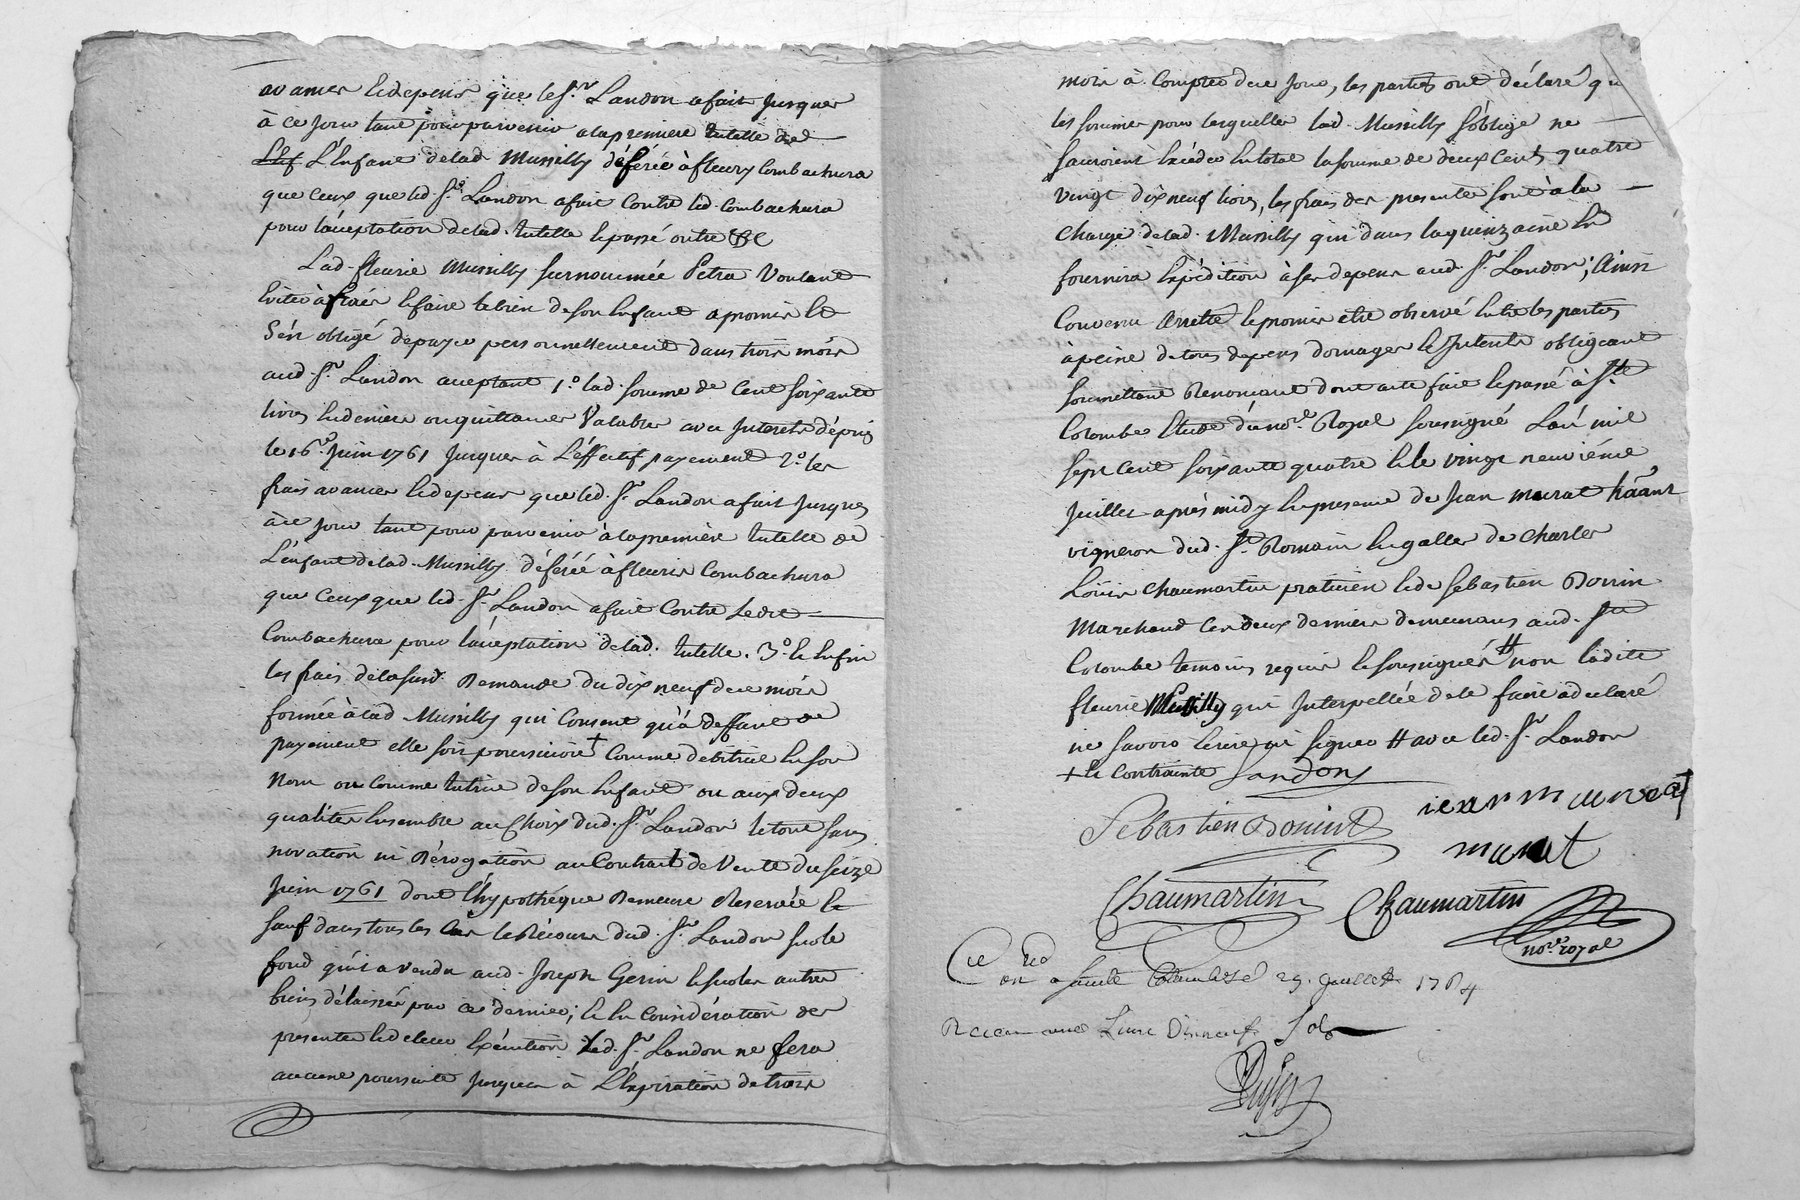 avances et depens que le Sr. Landon a fait jusques
à ce jour tant pour parvenir a la premiere tutelle de
L'Enfant de lad. Mussilly déférée à fleury Combachura
que ceux que led. Sr. Landon a fait Contre led. Combachura
pour l'acceptation de lad. tutelle et passé outre &c
Lad. fleurie Mussilly surnommée Petra voulant
Eviter à fraér et faire le bien de son Enfant a promis et
s'est obligé de payer personnellement dans trois mois
aud. Sr. Landon acceptant 1°. lad. somme de Cent soixante
livres en deniers ou quittances valables avec Interets dépuis
le 16e. Juin 1761 jusques à L'éffectif payement 2°. les
frais avances et depens que led. Sr. Landon a fait jusques
à ce jour tant pour parvenir à la premiére tutelle de
L'enfant de lad. Mussilly déférée à fleuris Combachura
que Ceux que led. Sr. Landon a fait Contre ledit
Combachura pour l'acceptation de lad. tutelle. 3°. et Enfin
les frais de la susd. Demande du dix neuf de ce mois
formée à lad. Mussilly qui Consent qu'à deffaut de
payement elle soit poursuivie + Comme debitrice en son
Nom ou comme tutrice de son Enfant ou aux deux
qualités Ensemble au Choix dud. Sr. Landon le tout sans
novation ni Dérogation au Contract de Vente du seize
Juin 1761 dont l'hypothéque Demeure Reservée et
sauf dans tous les Cas le Récours dud. Sr. Landon sur le
fond qu'il a vendu aud. Joseph Gerin et sur les autres
biens délaissés par ce dernier; et En Considération des
presentes et de leur Exécution led. Sr. Landon ne fera
aucune poursuite jusques à L'Expiration de trois
mois à Compter de ce jour, les parties ont déclaré que
les sommes pour lesquelles lad. Mussilly s'oblige ne
sauroient Excéder En total la somme de deux Cents quatre
vingt dix neuf livres, les frais des presentes sont à la
charge de lad. Mussilly qui dans la quinzaine En
fournira Expédition à ses depens aud. Sr. Landon; Ainsi
Convenu Arretté et promis etre observé Entre les parties
à peine de tous depens domages et Interets obligeant
soumettant Renonçant dont acte fait et passé à Ste
Colombe Etude du nore. Royal soussigné L'an mil
sept cent soixante quatre et le vingt neuviéme
Juillet après midy En presence de Jean murat
vigneron dud. St. Romain En galles de Charles
Loüis Chaumartin praticien et de Sebastien Donin
Marchand Ces deux derniers demeurans aud. Ste
Colombe temoins requis et soussignés # non ladite
fleurie Mussilly qui Interpellée de le faire a déclaré
ne savoir Ecrire ni signer # avec led. Sr. Landon
+ et Contrainte Landon
Sebastien Donin
murat
Chaumartin Chaumartin
nore. royal
on a sainte Colombe le 29. Juillet 1764
Livre Dixneuf Sols